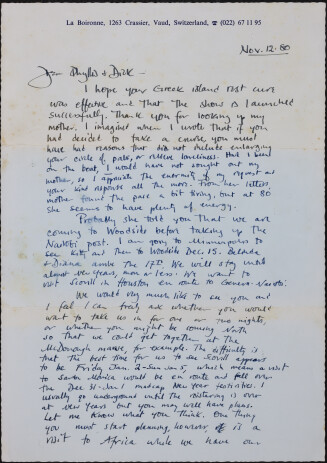 La Boironne, 1263 Crassier, Vaud, Switzerland, ☎ (022) 67 11 95
Nov. 12. 80
Dear Phyllis & Dick –
I hope your Greek island rest cure
was effective and that the show is launched
successfully. Thank you for looking up my
mother. I imagined when I wrote that if you
had decided to take a cruise you must
have had reasons that did not include enlarging
your circle of pals, or relieve loneliness. Had I been
on the boat, I would have not sought out my
mother, so I appreciate the enormity of my request and
your kind response all the more. From her letters
mother found the pace a bit tiring, but at 80
she seems to have plenty of energy.
Probably she told you that we are
coming to Woodside before taking up the
Nairobi post. I am going to Minneapolis to
see Katy and then to Woodside Dec. 15. Belinda
& Diana arrive the 17th. We will stay until
about New Years, more or less. We want to
visit Scovill in Houston en route to Geneva-Nairobi.
We would very much like to see you and
I feel I can freely ask whether you would
want to take us in for one or two nights,
or whether you might be coming North
so that we could get together at the
McDonough manse for example. The difficulty is
that the best time for us to see Scovill appears
to be Friday Jan. 2 – Sun Jan 5, which means a visit
to Santa Monica would be en route and fall over
the Dec 31 – Jan 1 madcap New Year festivities. I
usually go underground until the roistering is over
at New Years but you may well have plans.
Let me know what you think. One thing
you must start planning, however, is a
visit to Africa while we have our